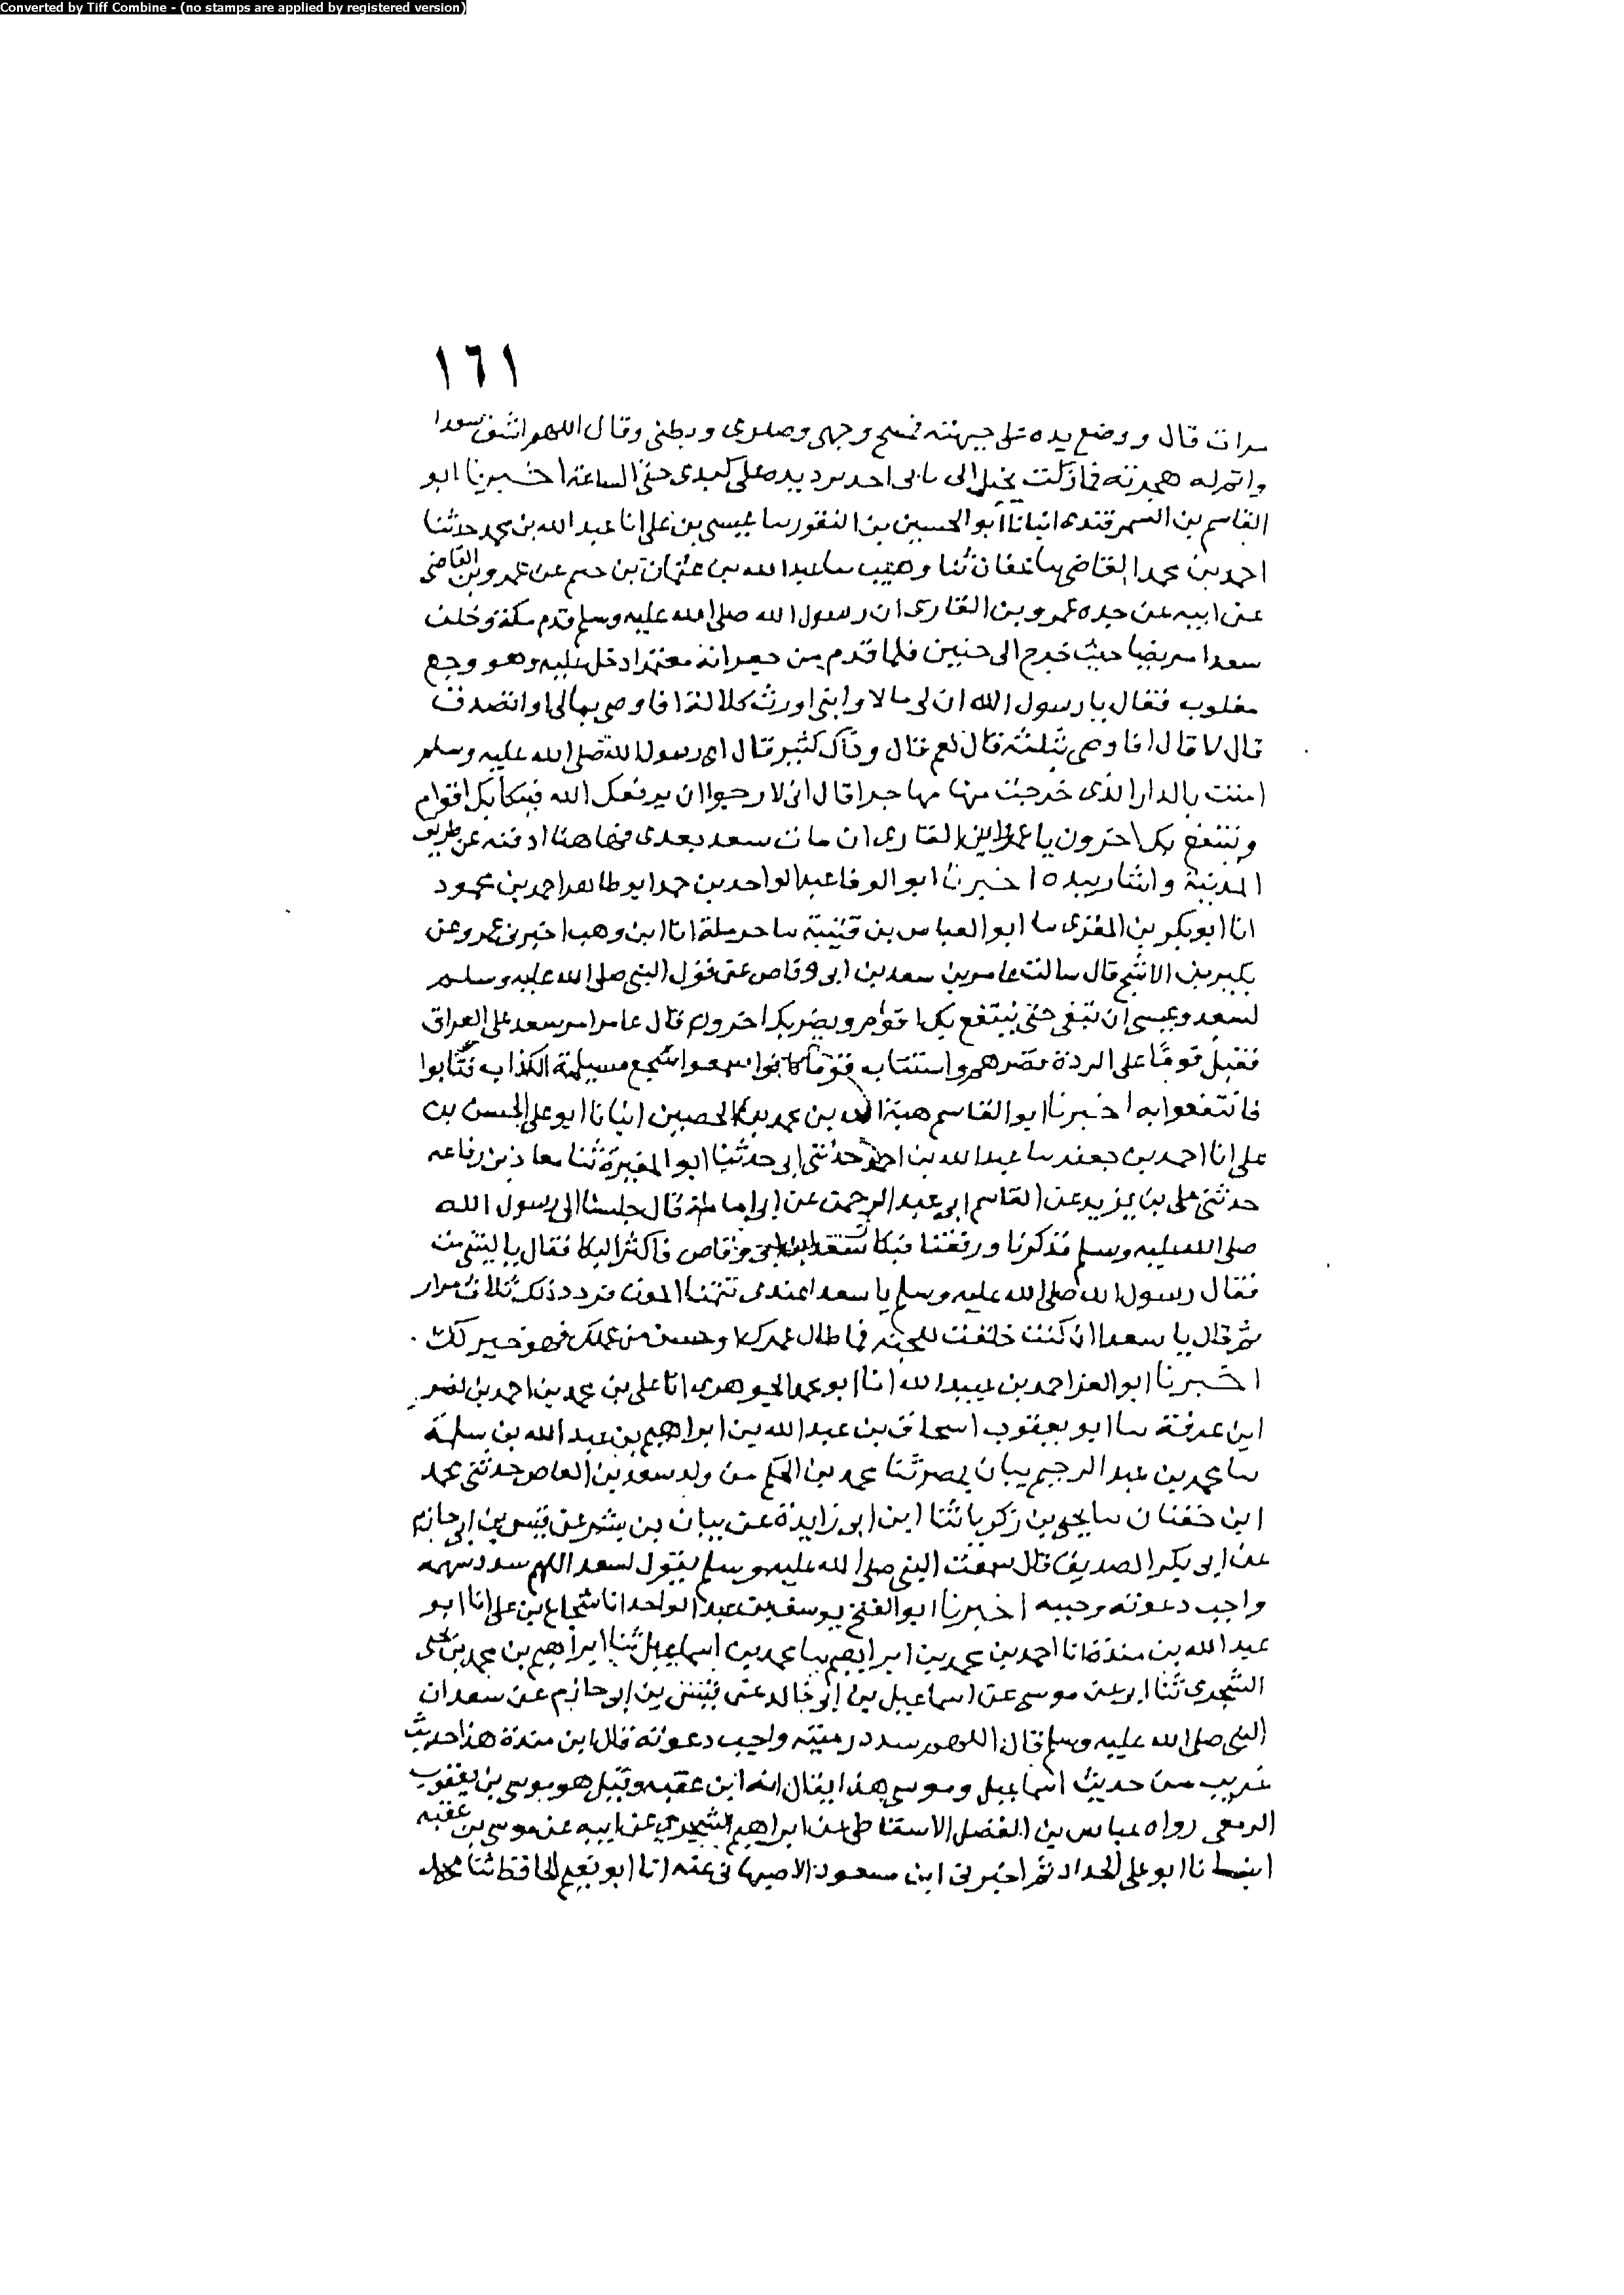 Converted by Tiff Combine - (no stamps are applied by registered version)
١٦١
مرات قال ووضع يده على جبهته فمسح وجهى وصدرى وبطنى وقال اللهم اشف سعدا
واتم له هجرته فمازلت يخيل الى بانى احد برد يده على كبدى حتى الساعة اخبرنا ابو
القاسم بن السمرقندى انبانا أبو الحسين بن النقور سا عيسى بن على انا عبد الله بن محمد حدثنا
احمد بن محمد القاضى سا عفان ثنا وهيب سا عبد الله بن عثمان بن خيم عن عمرو بن القاضى
عن ابيه عن جده عمرو بن القارى ان رسول الله صلى الله عليه وسلم قدم مكة وخلف
سعدا مريضا حيث خرج الى حنين فلما قدم من جعرانة معتمرا دخل عليه وهو وجع
مغلوب فقال يا رسول الله ان لى مالا وانى اورث كلالة افاوصى بمالى او اتصدق
قال لا قال افاوصى بثلثه قال نعم قال وذاك كثير قال اى رسول الله صلى الله عليه وسلم
امنت بالدار الذى خرجت منها مهاجرا قال انى لارجوا ان يرفعك الله فينكا بك اقوام
وينتفع بك اخرون يا عمرو بن القارى ان مات سعد بعدى فهاهنا ادفنه عن طريق
المدينة واشار بيده اخبرنا ابو الوفا عبد الواحد بن حمد ابو طاهر احمد بن محمود
انا ابو بكر بن المقرى سا ابو العباس بن قتيبة سا حرملة انا ابن وهب اخبرنى عمرو عن
بكير بن الاشج قال سالت عامر بن سعد بن ابى وقاص عن قول النبى صلى الله عليه وسلم
لسعد وعيسى ان تبقى حتى ينتفع بك اقوام ويضر بك اخرون قال عامر امر سعد على العراق
فقتل قوما على الردة فضرهم واستتاب قوما كانوا سجعوا سجع مسيلمة الكذاب فتابوا
فانتفعوا به اخبرنا ابو القاسم هبة الله بن محمد بن الحصين انبانا ابو على الحسن بن
على انا احمد بن جعفر سا عبد الله بن احمد حدثنى ابى حدثنا ابو المغيرة ثنا معاذ بن رفاعه
حدثنى على بن يزيد عن القاسم ابى عبد الرحمن عن ابى امامة قال جلسنا الى رسول الله
صلى الله عليه وسلم فذكرنا ورققنا فبكا سعد بن ابى وقاص فاكثر البكا فقال يا ليتنى مت
فقال رسول الله صلى الله عليه وسلم يا سعد اعندى تتمنا الموت فردد ذلك ثلاث مرار
ثم قال يا سعد ان كنت خلقت للجنة فما طال عمرك او حسن من عملك فهو خير لك
اخبرنا ابو العز احمد بن عبيد الله انا ابو محمد الجوهرى انا على بن محمد بن احمد بن نصر
ابن عرفة سا ابو يعقوب اسحاق بن عبد الله بن ابراهيم بن عبد الله بن سلمة
سا محمد بن عبد الرحيم بيان بمصر ثنا محمد بن الحكم من ولد سعد بن العاص حدثنى محمد
ابن خفتان سا يحيى بن زكريا ثنا ابن ابى زايدة عن بيان بن بشر عن قيس بن ابى حازم
عن ابى بكر الصديق قال سمعت النبى صلى الله عليه وسلم يقول لسعد اللهم سدد سهمه
واجب دعوته وحببه اخبرنا ابو الفتح يوسف بن عبد الواحد انا شجاع بن على انا ابو
عبد الله بن مندة انا احمد بن محمد بن ابراهيم سا محمد بن اسماعيل ثنا ابراهيم بن محمد بن يحيى
الشجرى ثنا ابى عن موسى عن اسماعيل بن ابى خالد عن قيس بن ابى حازم عن سعد ان
النبى صلى الله عليه وسلم قال اللهم سدد رميته واجب دعوته قال ابن مندة هذا حديث
غريب من حديث اسماعيل وموسى هذا يقال انه ابن عقبه وقيل هو موسى بن يعقوب
الزمعى رواه عباس بن الفضل الاسقاطى عن ابراهيم الشجرى عن ابيه عن موسى بن عقبه
انا ابو على الحداد ثم اخبرنى ابن مسعود الاصبهانى عنه انا ابو نعيم الحافظ ثنا محمد